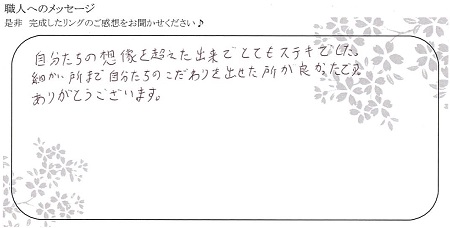 職人へのメッセージ
是非 完成したリングのご感想をお聞かせください♪
自分たちの想像を超えた出来でとてもステキでした。
細かい所まで自分たちのこだわりを出せた所が良かったです。
ありがとうございます。